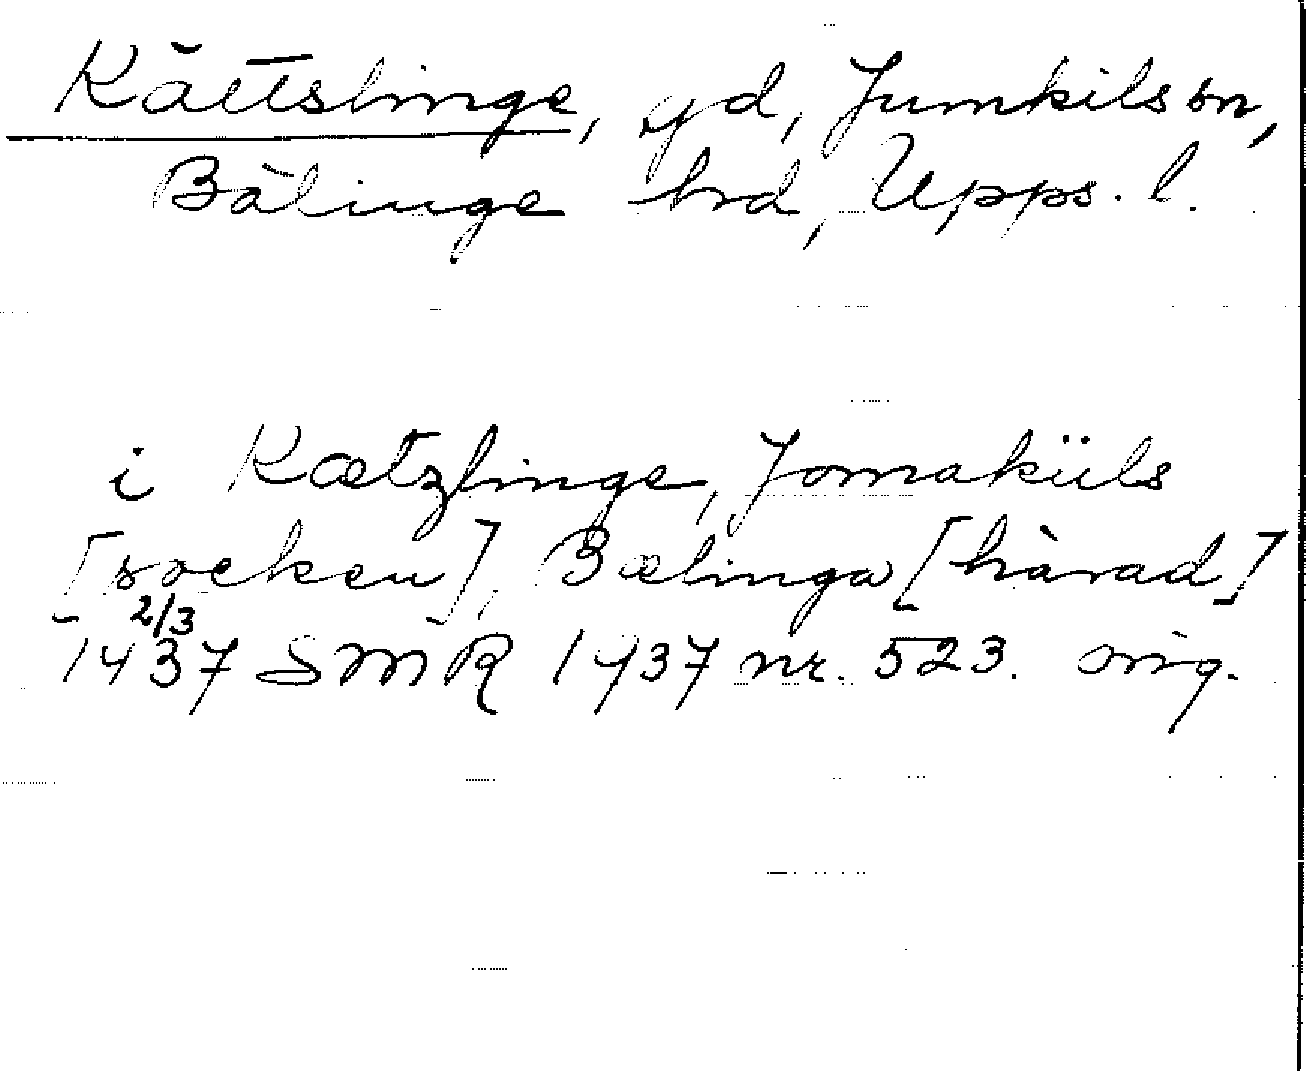 Kättslinge, gd, Jumkils sn,
Bälinge hrd, Upps. l.
i Kætzlinge, Jomaküls
[socken], Bælinga [härad]
2/3
1437 SMR 1437 nr. 523. orig.